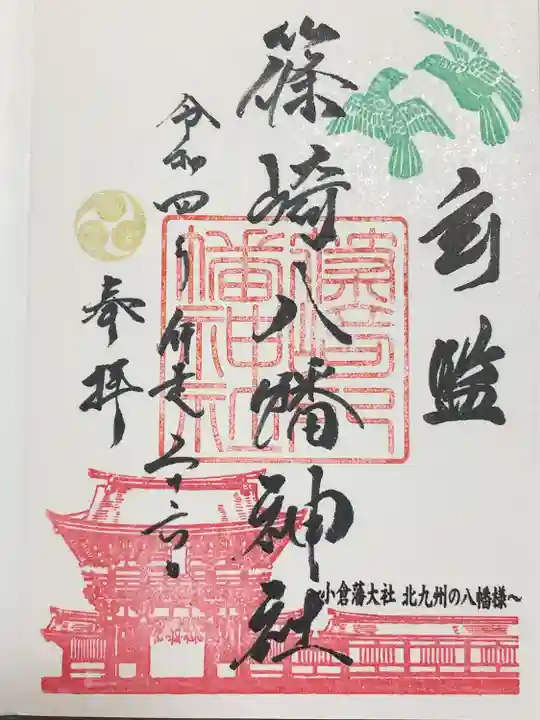 篠崎八幡神社
令和四年師走二十六日
奉拝
小倉藩大社 北九州の八幡様～
篠崎八幡神社